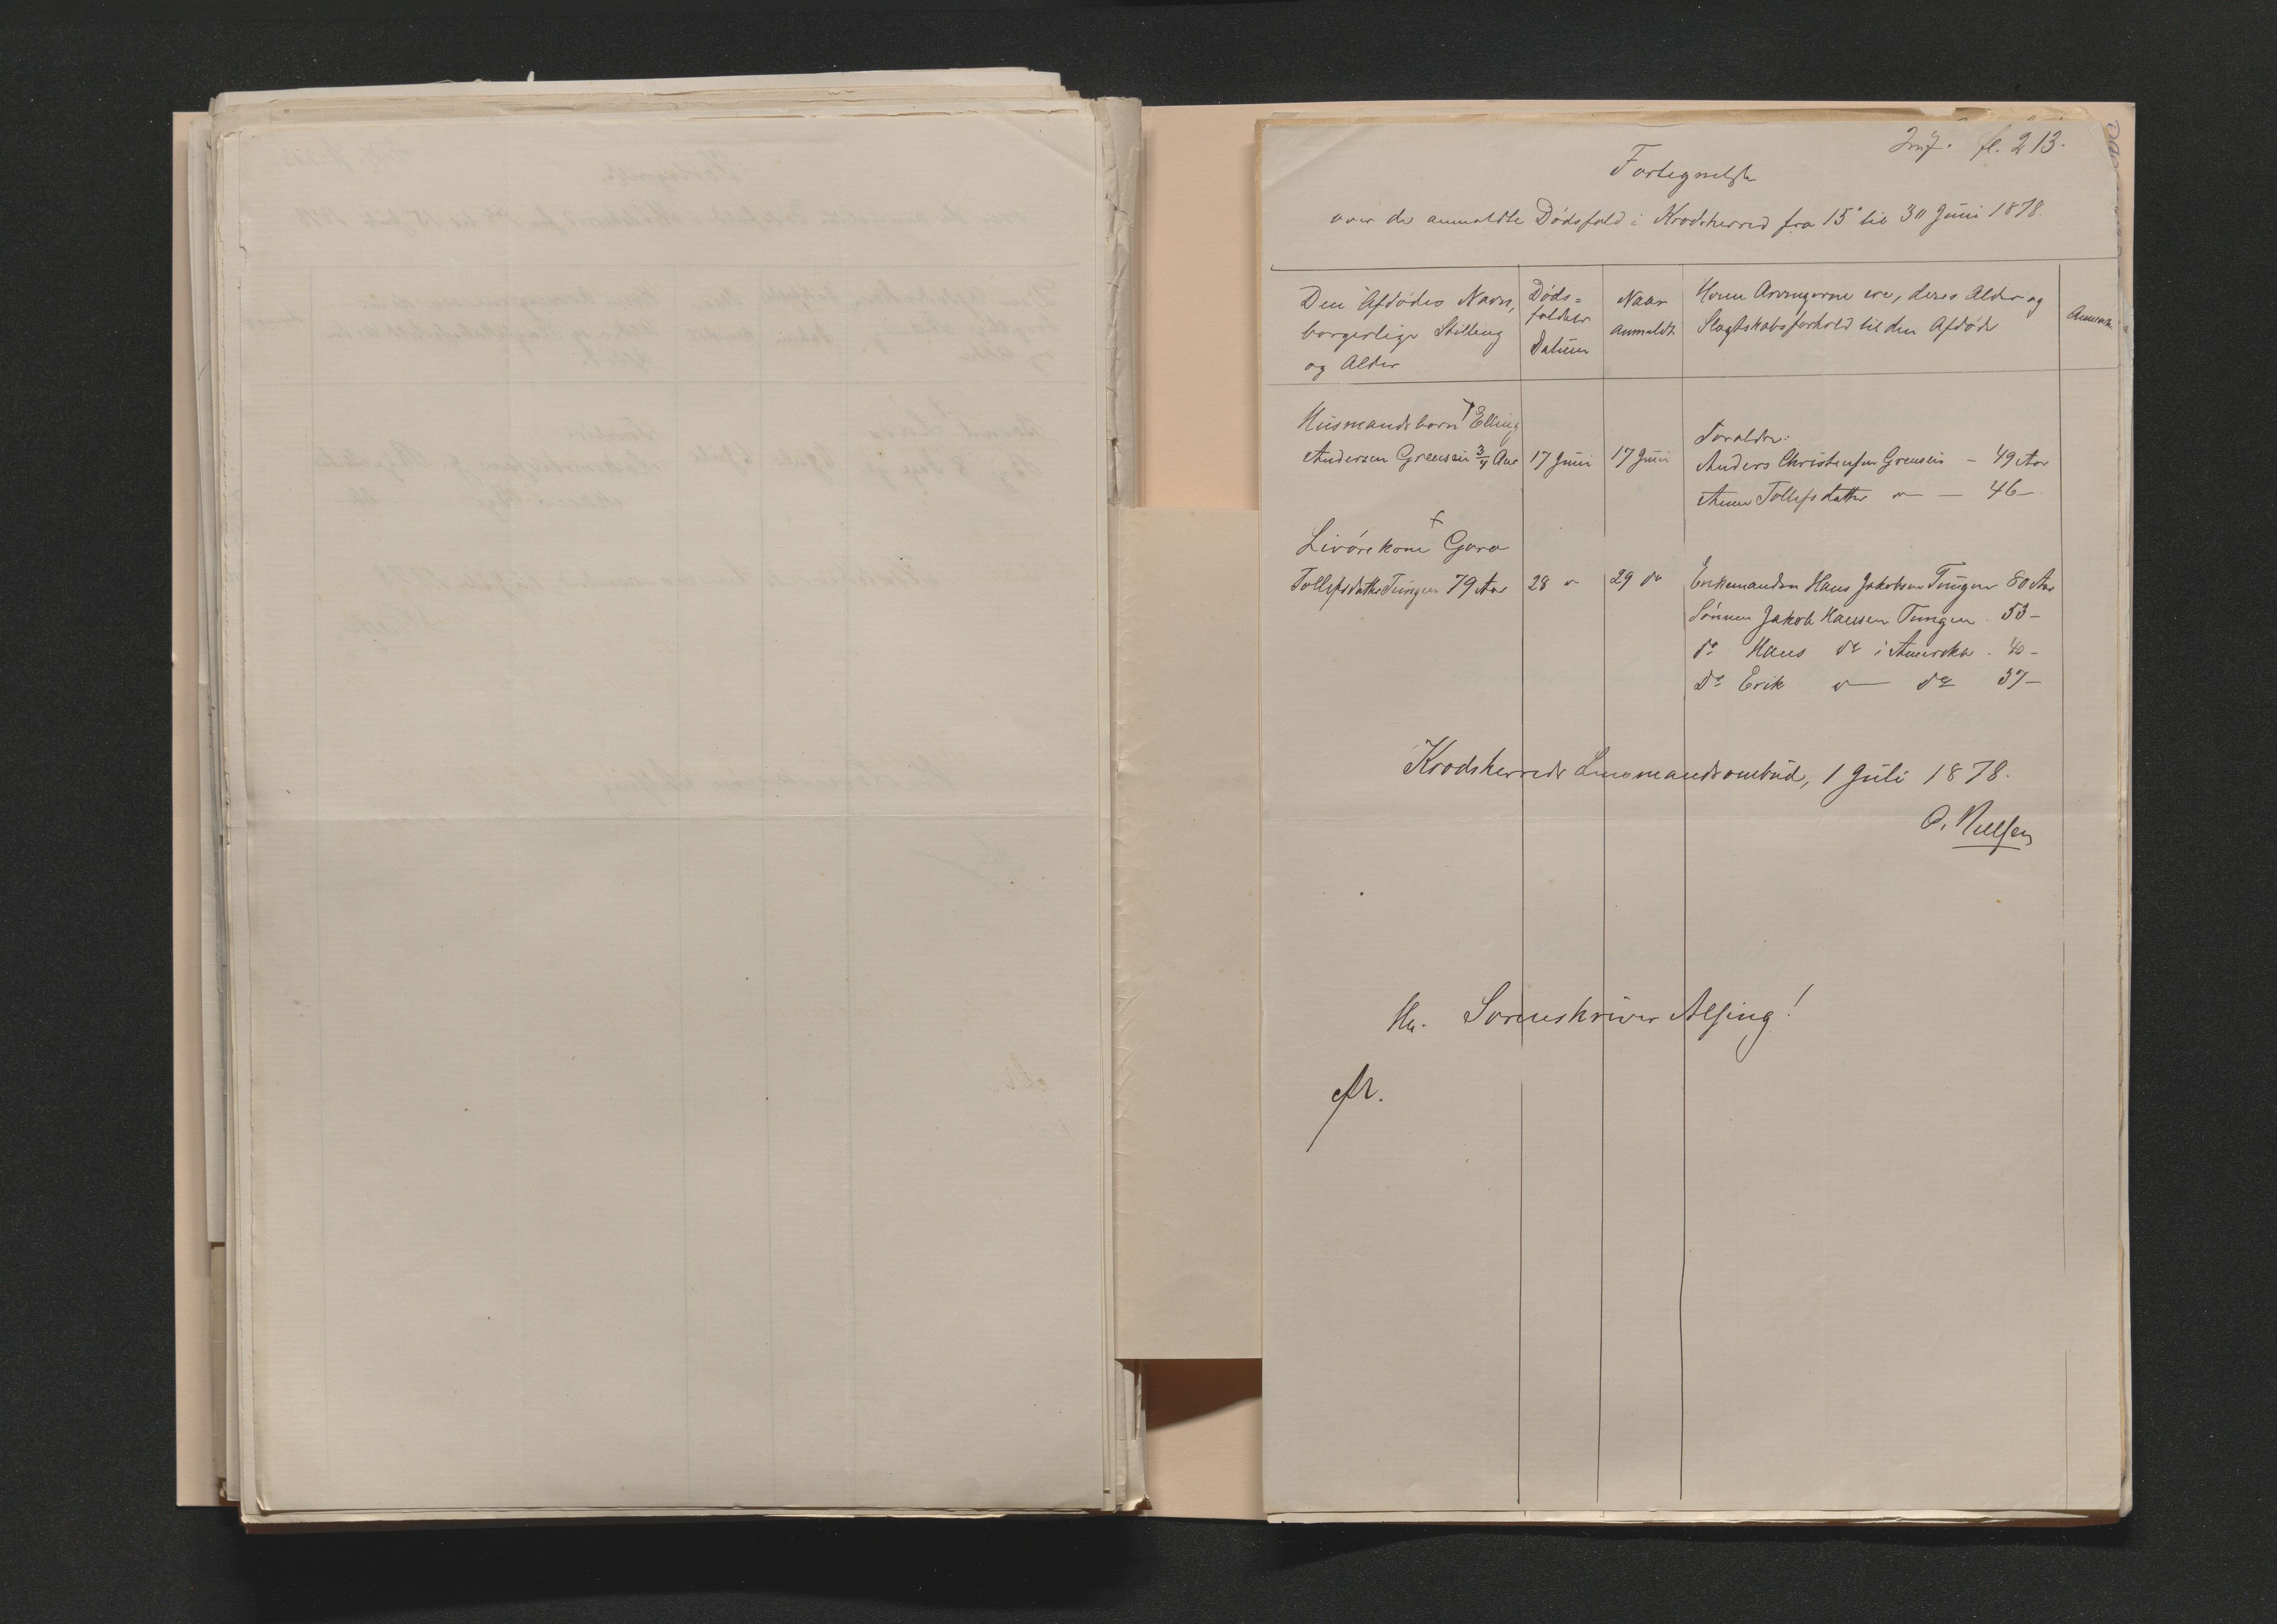 Fol. 213.
Fortegnelse
over de anmeldte Dødsfald i Krødsherred fra 15de til 30 Juni 1878
Den Afdødes Navn,
borgerlige Stilling
og Alder
Døds=
faldets
Datum
Naar
anmeldt
Hvem Arvingerne ere, deres Alder og
Slægtskabsforhold til den Afdøde
Anmærk.
Husmandsbarn Elling
Andersen Grensen 3/4 Aar
17 Juni
17 Juni
Forældre:
Anders Christensen Grensen - 49 Aar
Anne Tollefsdatter " - 46 -
Livørekone Guro
Tollefsdatter Tungen 79 Aar
28 "
29 do
Enkemanden Hans Jakobsen Tungen 80 Aar
Sønnen Jakob Hansen Tungen. 53 -
do Hans do i Amerika - 40 -
Do Erik " - do 37 -
Krødsherreds Lensmandsombud, 1 Juli 1878.
O. Nielsen
Hr. Sorenskriver Alsing!